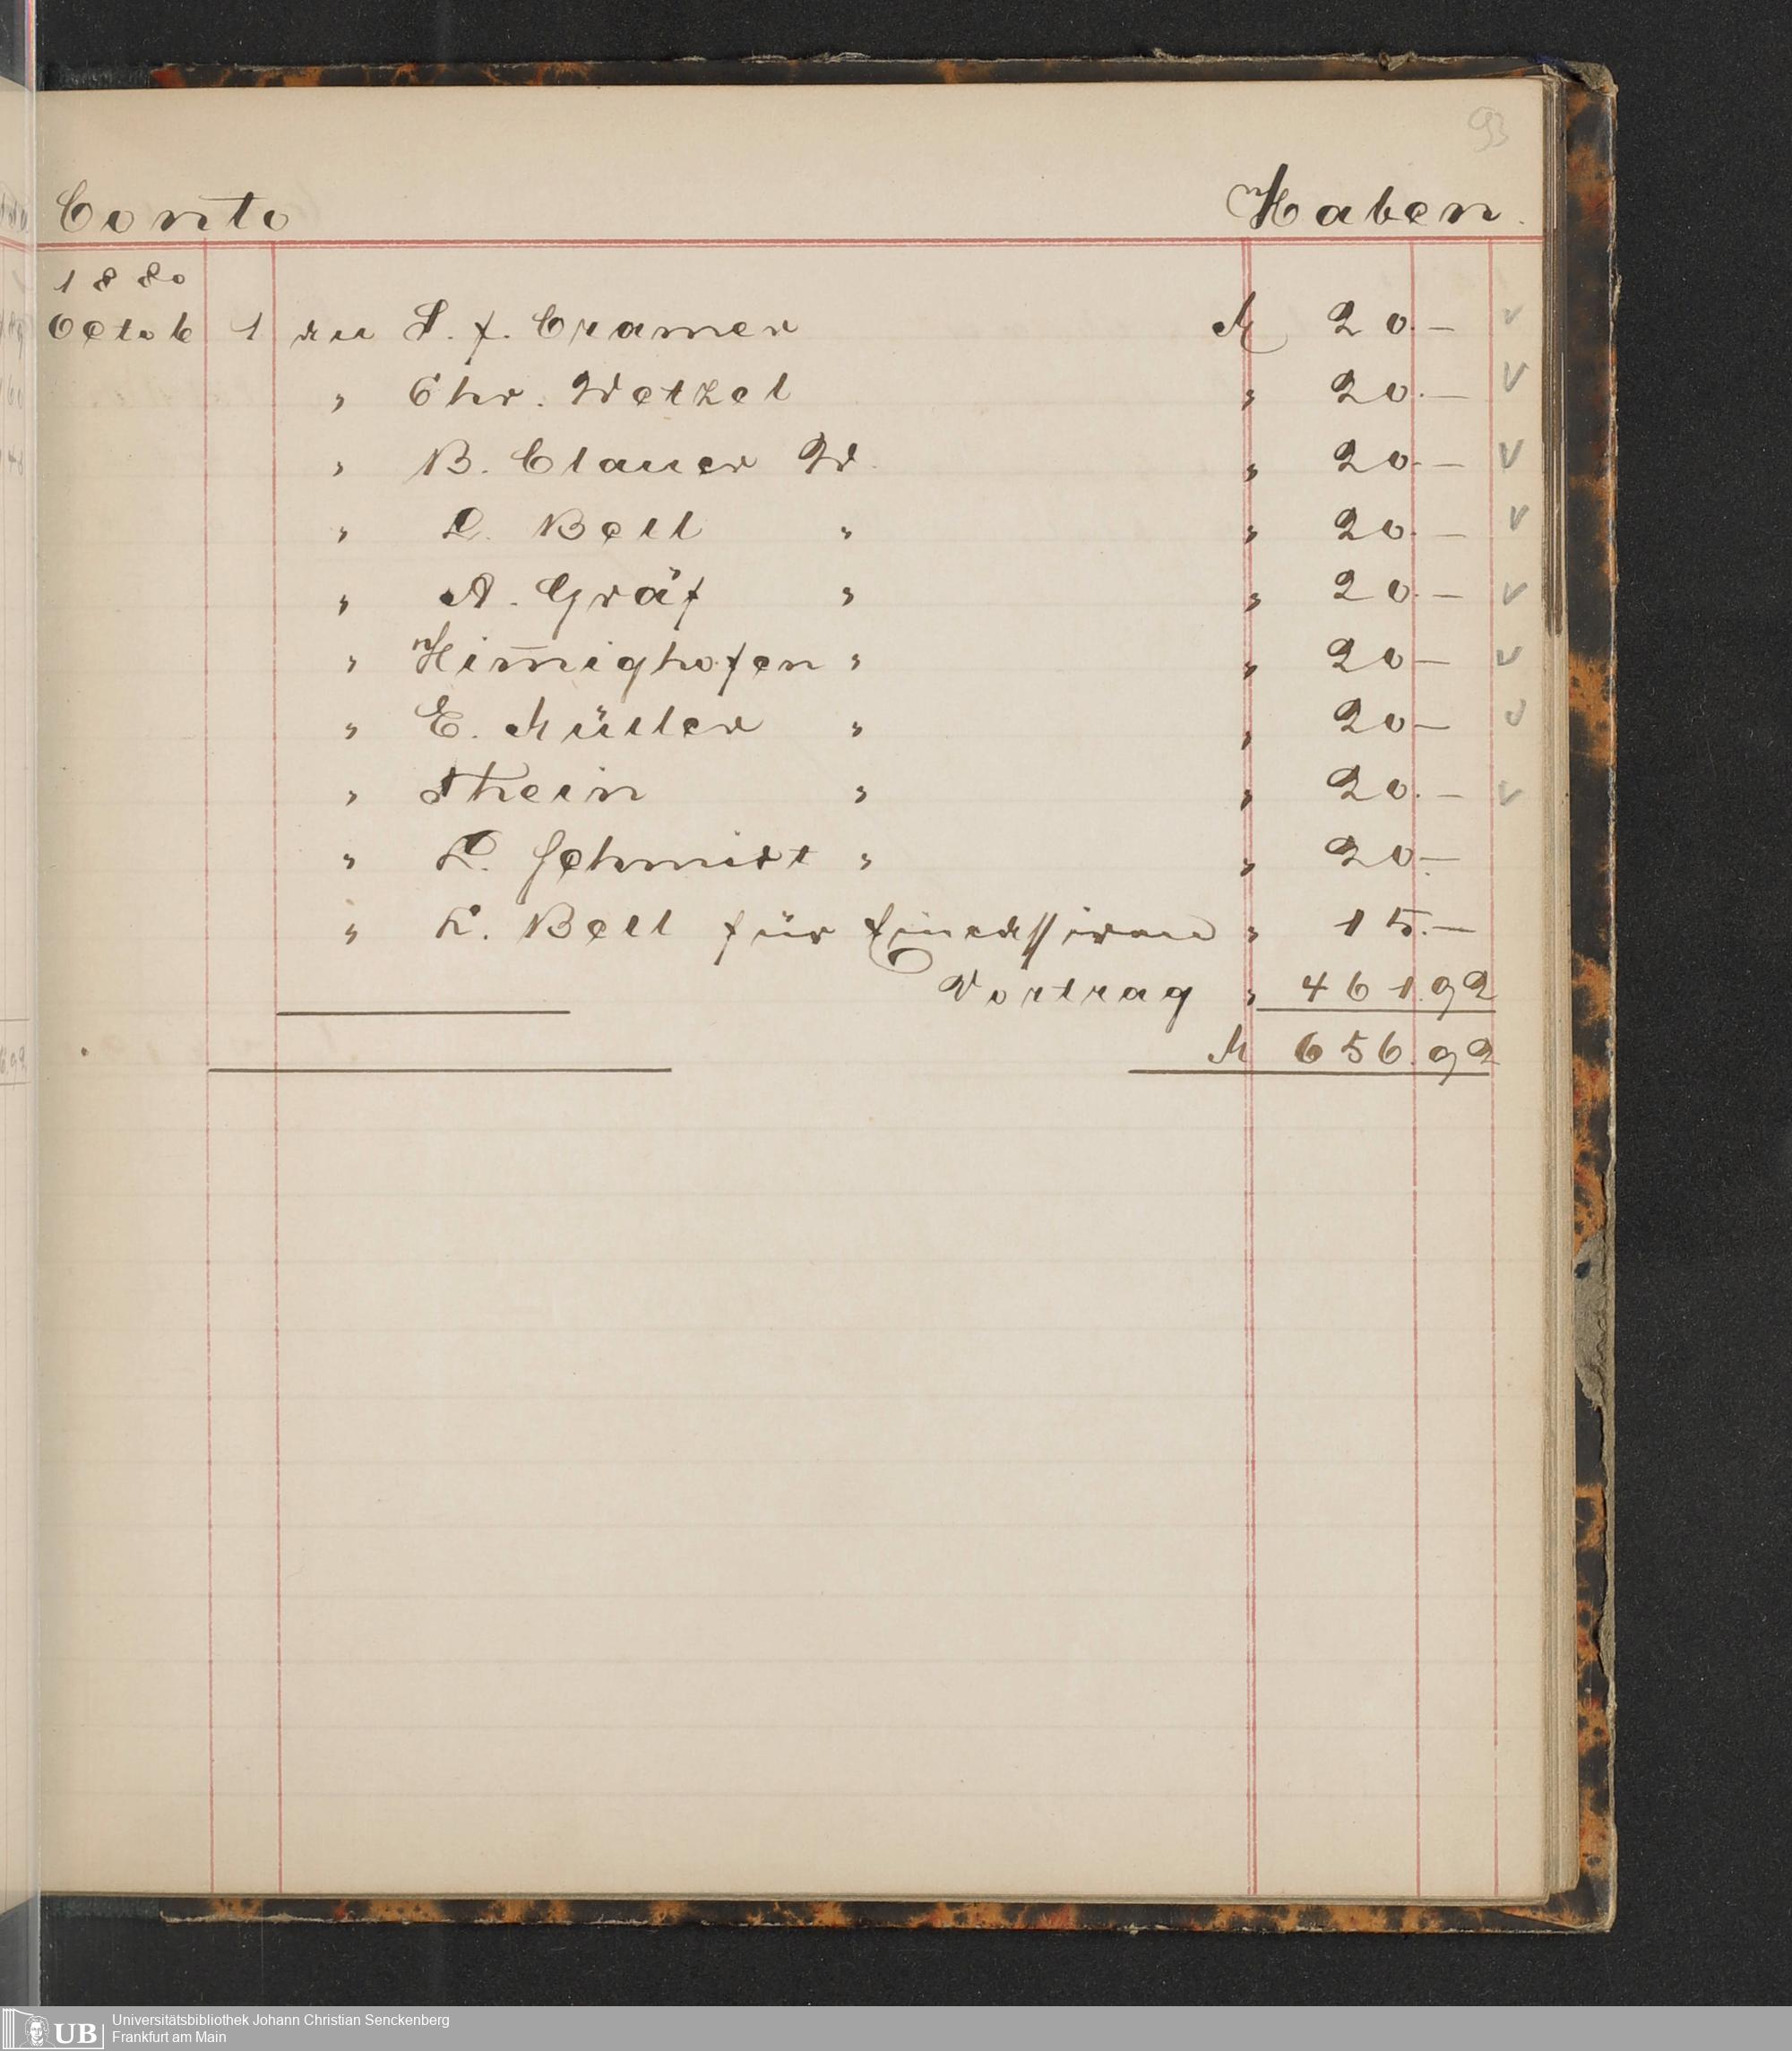 93
Conto Haben.
1880
Octob 1 an P. f. Cramer M 20.—
" Chr. Wetzel " 20.—
" B. Clauer W. " 20.—
" L. Bell " " 20.—
" A. Gräf " " 20.—
" Him̅ighofen " " 20—
" E. Müller " " 20—
" Thein " " 20.—
" L. Schmidt " " 20.—
" L. Bell für Eincassiren " 15.—
Vortrag " 461.92
M 656.92
UB Universitätsbibliothek Johann Christian Senckenberg
Frankfurt am Main